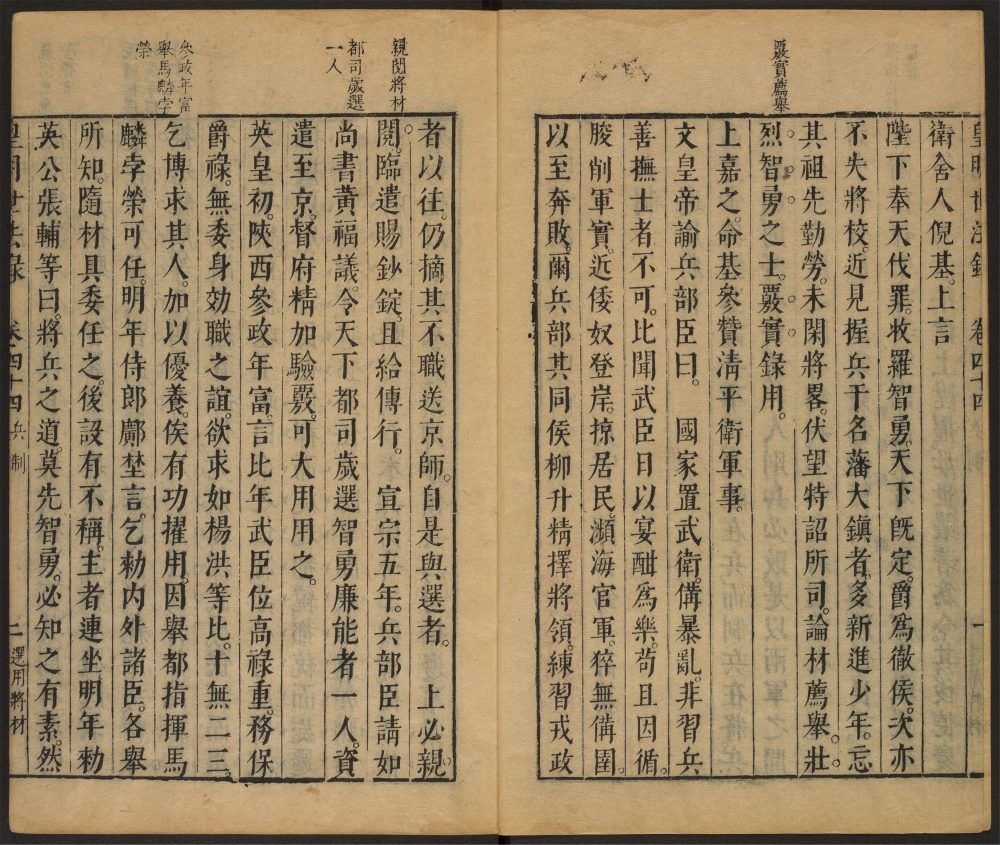 覈實薦舉
皇明世法錄 卷四十四 一
衛舍人倪基上言
陛下奉天伐罪。收羅智勇。天下既定。爵爲徹侯。次亦
不失將校。近見握兵于名藩大鎭者。多新進少年。忘
其祖先勤勞。未閑將畧。伏望特詔所司。論材薦舉。壯
烈智勇之士。覈實錄用。
上嘉之。命基參贊淸平衛軍事。
文皇帝諭兵部臣曰。 國家置武衛。備暴亂。非習兵
善撫士者不可。比聞武臣日以宴酣爲樂。苟且因循。
朘削軍實。近倭奴登岸。掠居民。瀕海官軍。猝無備圉。
以至奔敗。爾兵部其同侯柳升精擇將領。練習戎政
親閱將材
都司歲選
一人
參政年富
舉馬麟孛
榮
者以往。仍摘其不職送京師。自是與選者。 上必親
閱。臨遣賜鈔錠。且給傳行。 宣宗五年。兵部臣請如
尚書黃福議。令天下都司歲選智勇廉能者一人。資
遣至京。督府精加驗覈。可大用用之。
英皇初。陝西參政年富。言比年武臣位高祿重。務保
爵祿。無委身効職之誼。欲求如楊洪等比。十無二三。
乞博求其人。加以優養。俟有功擢用。因舉都指揮馬
麟孛榮可任。明年侍郎鄺埜言。乞勑內外諸臣。各舉
所知。隨材具委任之。後設有不稱。主者連坐。明年勑
英公張輔等曰。將兵之道。莫先智勇。必知之有素。然
皇明世法錄 卷四十四 兵制 二 選用將材